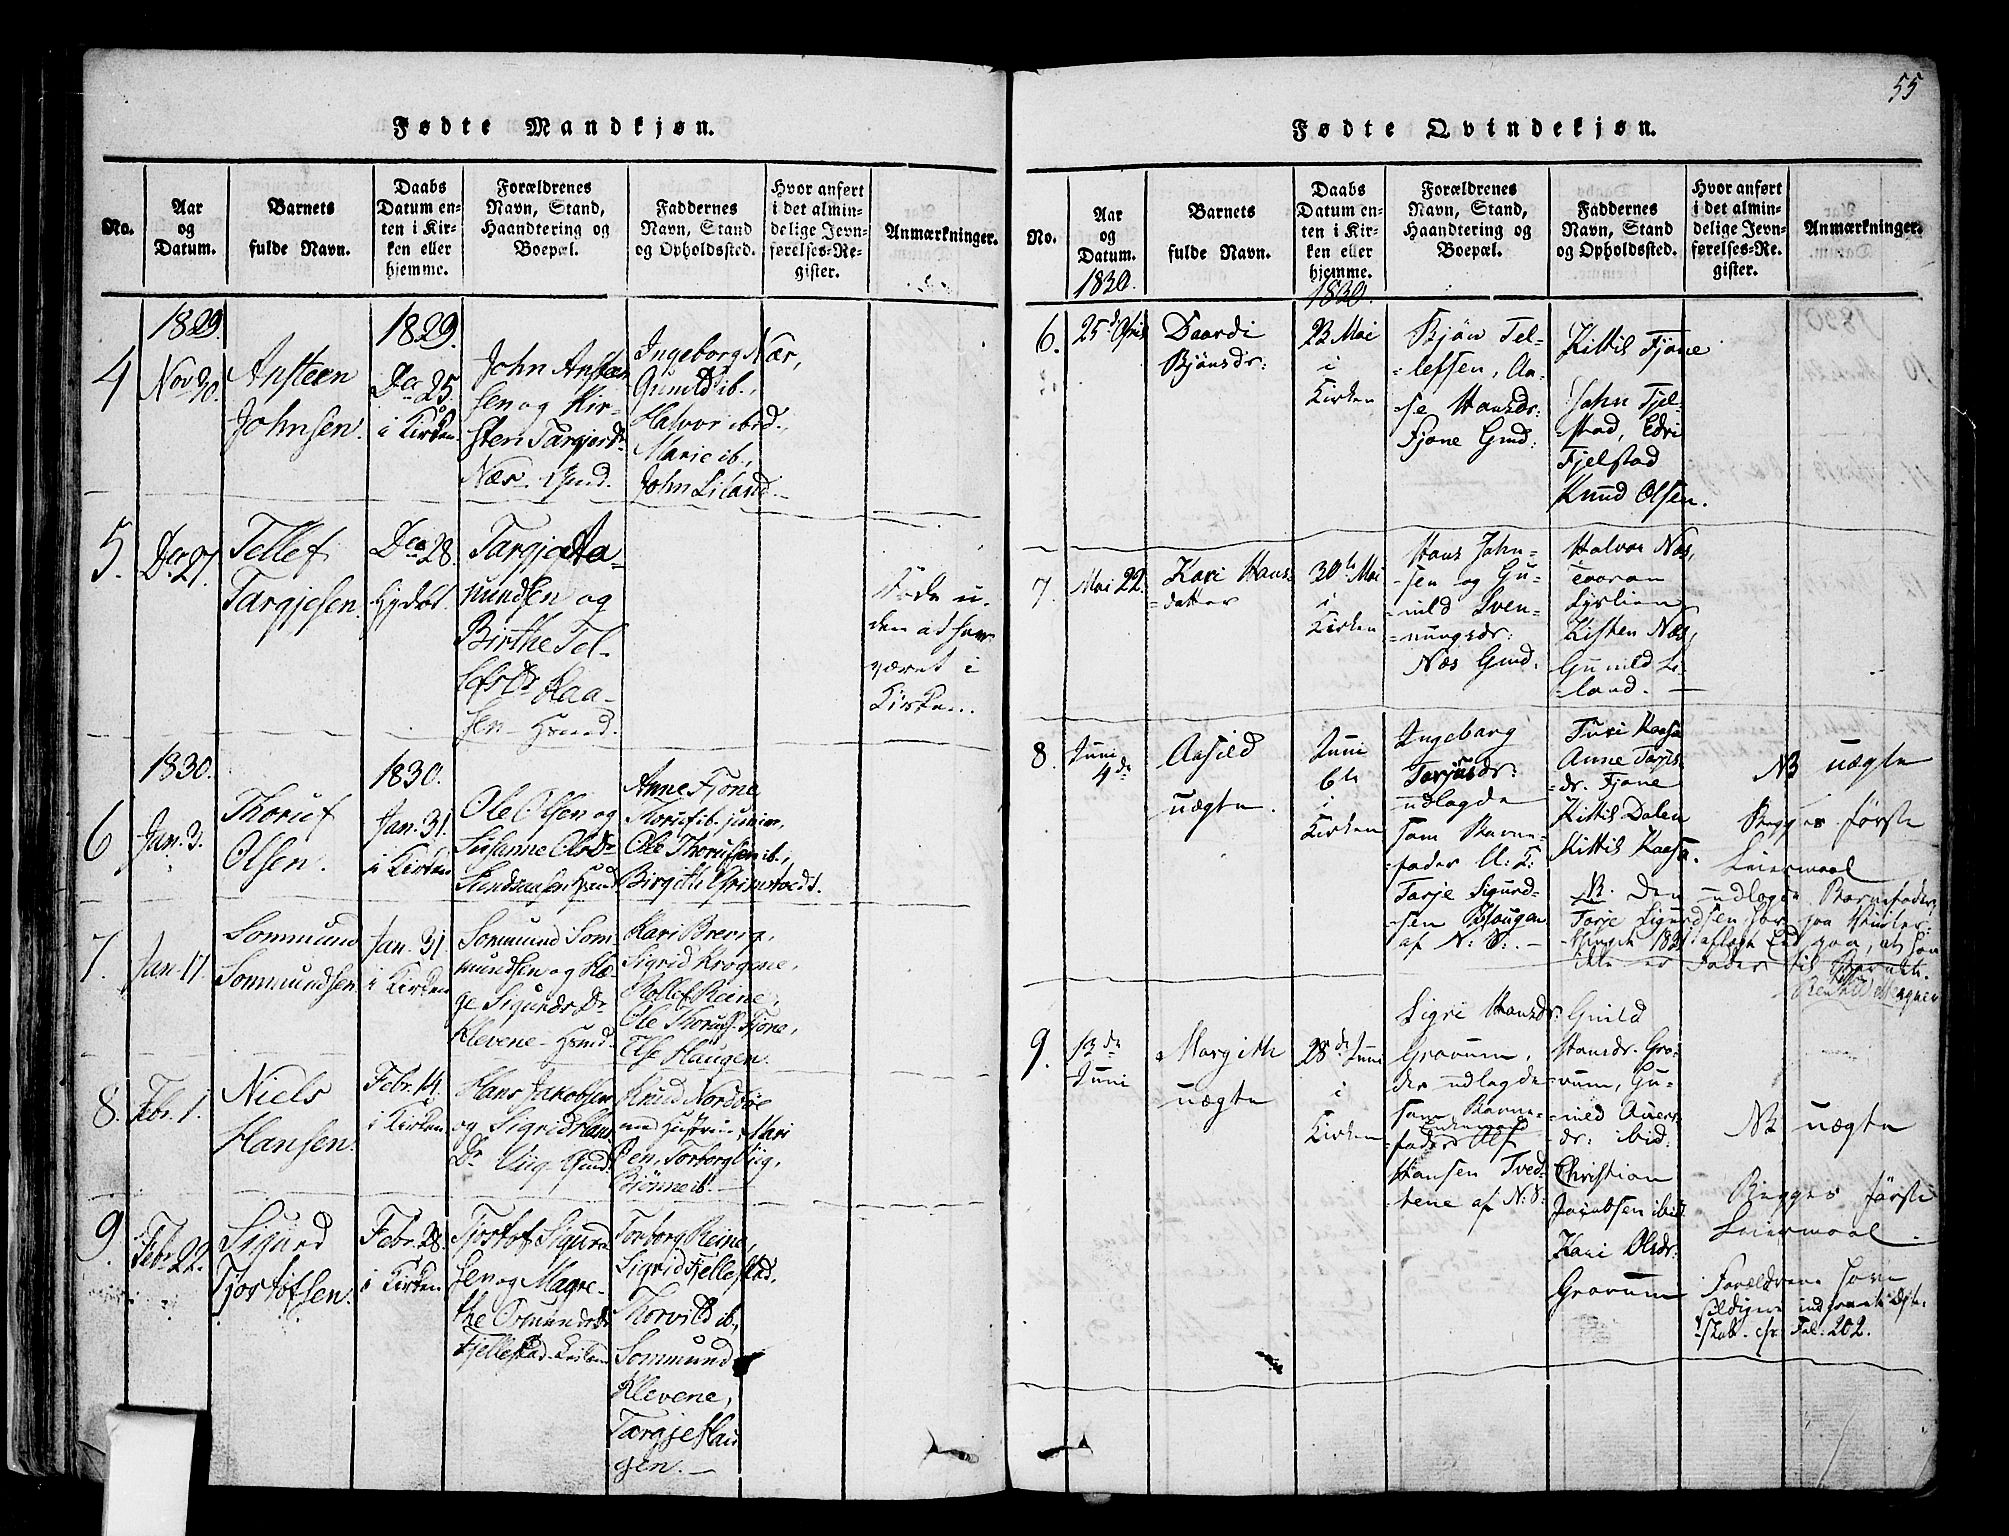 55
Fødte Mandkjøn.
No.
Aar
og
Datum.
Barnets
fulde Navn.
Daabs
Datum en-
ten i Kir-
ken eller
hjemme.
Forældrenes
Navn, Stand,
Haandtering og
Boepæl.
Faddernes
Navn, Stand
og Opholdssted.
Hvor anført
i det almin-
delige Jevn-
førelses-Re-
gister.
Anmærkninger.
1829
4
Nov 30.
Ansteen
Johnsen.
1829.
Dec 25.
i Kirken
John Ansten
sen og Kir-
sten Targjersdr
Næs
Ingeborg Nær,
Gunild ib.,
Halvor ibid.,
Marie ib.,
John Liland.
5.
Dec 27.
Tellef
Targjesen.
Dec 28.
Targje Aa-
mundsen og
Birthe Tel-
lefsdr Haa-
sen
uden at have
været i
Kirken.
1830.
6
Jan. 3.
Thoruf
Olsen.
1830.
Jan. 31.
i Kirken
Ole Olsen og
Susanne Olsdr
Anne Fjone,
Thoruf ib. junior,
Ole Thorufsen ib.,
Birgith Grimstvedt.
7.
Jan. 17.
Sommund
Sommundsen
Jan. 31.
i Kirken
Sommund Som
mundsen og Aa-
ge Sigurdsdr
Klevene
Kari Brevig,
Sigrid Krogene,
Rollef Reine,
Ole Thorufs. Fjone,
Else Haugen.
8.
Febr. 1.
Niels
Hansen.
Febr. 14.
i Kirken
Hans Jakobsen
og Sigrid Hans
Dr Viig
Knud Nordbøe
med Hustrue, Mari
Øen, Torborg Viig,
Bjørne ib.
9.
Febr. 22.
Sigurd
Tjostofsen.
Febr. 28.
i Kirken
Tjostof Sigurd
sen og Magre-
the Osmundsdr
Fjellestad
Torborg Reine,
Sigrid Fjellestad.
Thorvild ib,
Sommund
Klevene,
Targje Hau
gen.
Fødte Qvindekjøn.
No.
Aar
og
Datum.
1830.
Barnets
fulde Navn.
Daabs
Datum en-
ten i Kir-
ken eller
hjemme.
1830.
Forældrenes
Navn, Stand,
Haandtering og
Boepæl.
Faddernes
Navn, Stand
og Opholdssted.
Hvor anført
i det almin-
delige Jevn-
førelses-Re-
gister.
Anmærkninger.
6.
25d April
Daardi
Bjönsdr:
23 Mai
i
Kirken
Bjön Tel-
lefsen, Aa-
se Hansdr:
Fjone Gmd:
Kittil Fjone
John Fjel-
stad, Edri
Fjelstad
Knud Olsen.
7.
Mai 22.
Kari Hans-
datter
30te Mai
i
Kirken
Hans John-
sen og Gu-
nild Sven-
nungsdr:
Næs Gmd:
Halvor Næs,
Lyslien
Kisten Næs,
Gunild Li-
land.
8.
Juni
4de
Aasild
uægte.
Juni
6te
i
Kirken
Ingeborg
Tarjusdr:
udlagde
som Barne-
fader U: K:
Tarje Sigurd-
sen Haugen
af N: S:
Turi Kaasa
Anne Tarjes-
dr. Fjone
Kittil Dalen
Kittil Kaasa.
NB uægte
Begges første
Leiermaal
NB. Den udlagde Barnefader,
Tarje Sigurdsen har paa Vinter-
thinget 1831 aflagt Eed paa, at han
ikke er Fader til Barnet.
9.
13de
Juni
Margith
uægte
28de Juni
i
Kirken
Sigri Hansdr:
Gravum,
der udlagde
som Barne-
fader Enkemand Alf
Hansen Tved-
tene af N: S:
Gunild
Hansdr. Gra-
vum, Gu-
nild Aners-
dr: ibid:
Christian
Jacobsen ibid
Kari Olsdr:
Gravum
NB uægte
Begges første
Leiermaal.
Forældrene have
sildigere indgaaet Ægte-
skab. cfr Fol: 202.